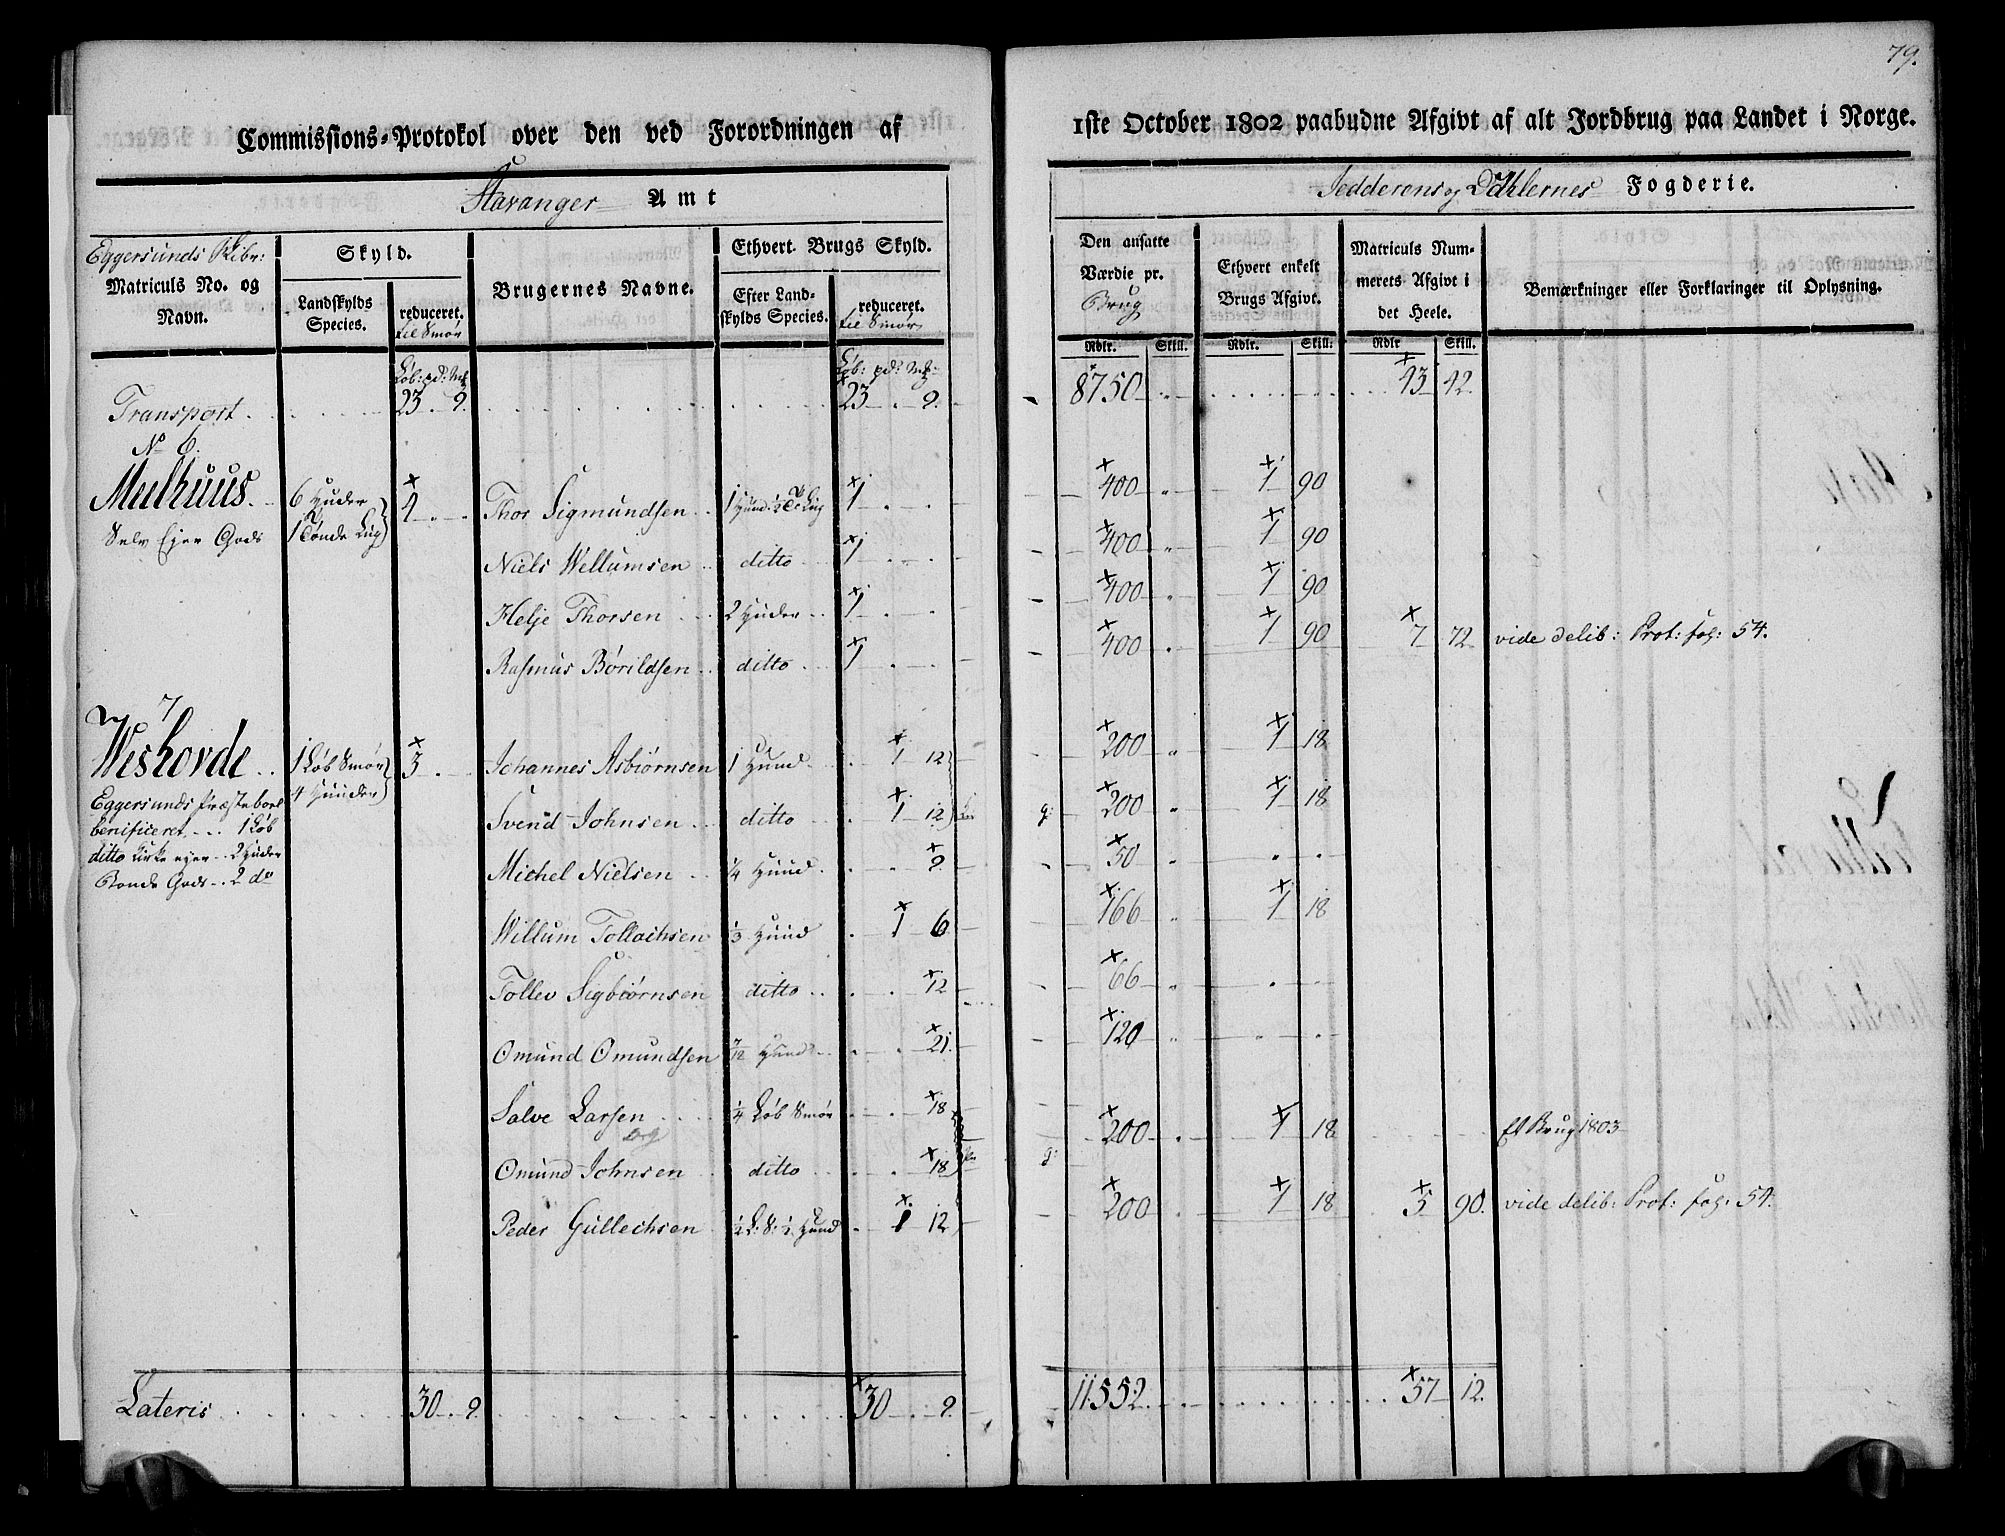 79.
Commissions-Protokol over den ved Forordningen af
1ste October 1802 paabudne Afgivt af alt Jordbrug paa Landet i Norge.
Stavanger Amt
Jedderens og Dahlernes Fogderie.
Eggersunds Skibr:
Matriculs No. og
Navn.
Skyld.
Landskylds
Species.
reduceret.
til Smør
Brugernes Navne.
Ethvert Brugs Skyld.
Efter Land-
skylds Species.
reduceret.
til Smør
Den ansatte
Værdie pr.
Brug
Ethvert enkelt
Brugs Afgivt.
Matriculs Num-
merets Afgivt i
det Heele.
Bemærkninger eller Forklaringer til Oplysning.
Rdlr. Skill. Rdlr. Skill. Rdlr Skill.
Løb: pd: Mk Løb: pd: Mk
Transport 23 . 9. 23 . 9. 8750 43 42.
No 6.
Mulhuus 6 Huder 4 Thor Sigmundsen 1 1 400 1 90
Selv Ejer Gods 1 Tønde
Niels Wellumsen ditto 1 400 1 90
Helje Thorsen 2 Huder 1 400 1 90
Rasmus Børildsen ditto 1 400 1 90 7 72 vide delib: Prot: fol: 54.
7
Weshovde 1 Løb Smør 3 Johannes Asbiørnsen 1 Huud 1 12 200 1 18
4 Huuder
Eggersunds Præstebord
Svend Johnsen ditto 1 12 200 1 18
benificeret 1 Løb
ditto Kirke ejer 2 Huder
Michel Nielsen 1/4 Huud 9. 50
Bonde Gods 2 do
Willum Tollachsen 1/3 Huud 1 6 166 1 18
Tollev Sigbiørnsen ditto 12 66
Omund Omundsen 7/12 Huud 21. 120
Salve Larsen 1/4 Løb Smør 18 200 1 18 Et Brug 1803
og
Omund Johnsen ditto 18
Peder Gullechsen 1/2 L: S: 1/2 Huud 1 12 200 1 18 5 90. vide delib: Prot: fol: 54.
Lateris 30 . 9. 30 . 9. 11552 57 12.